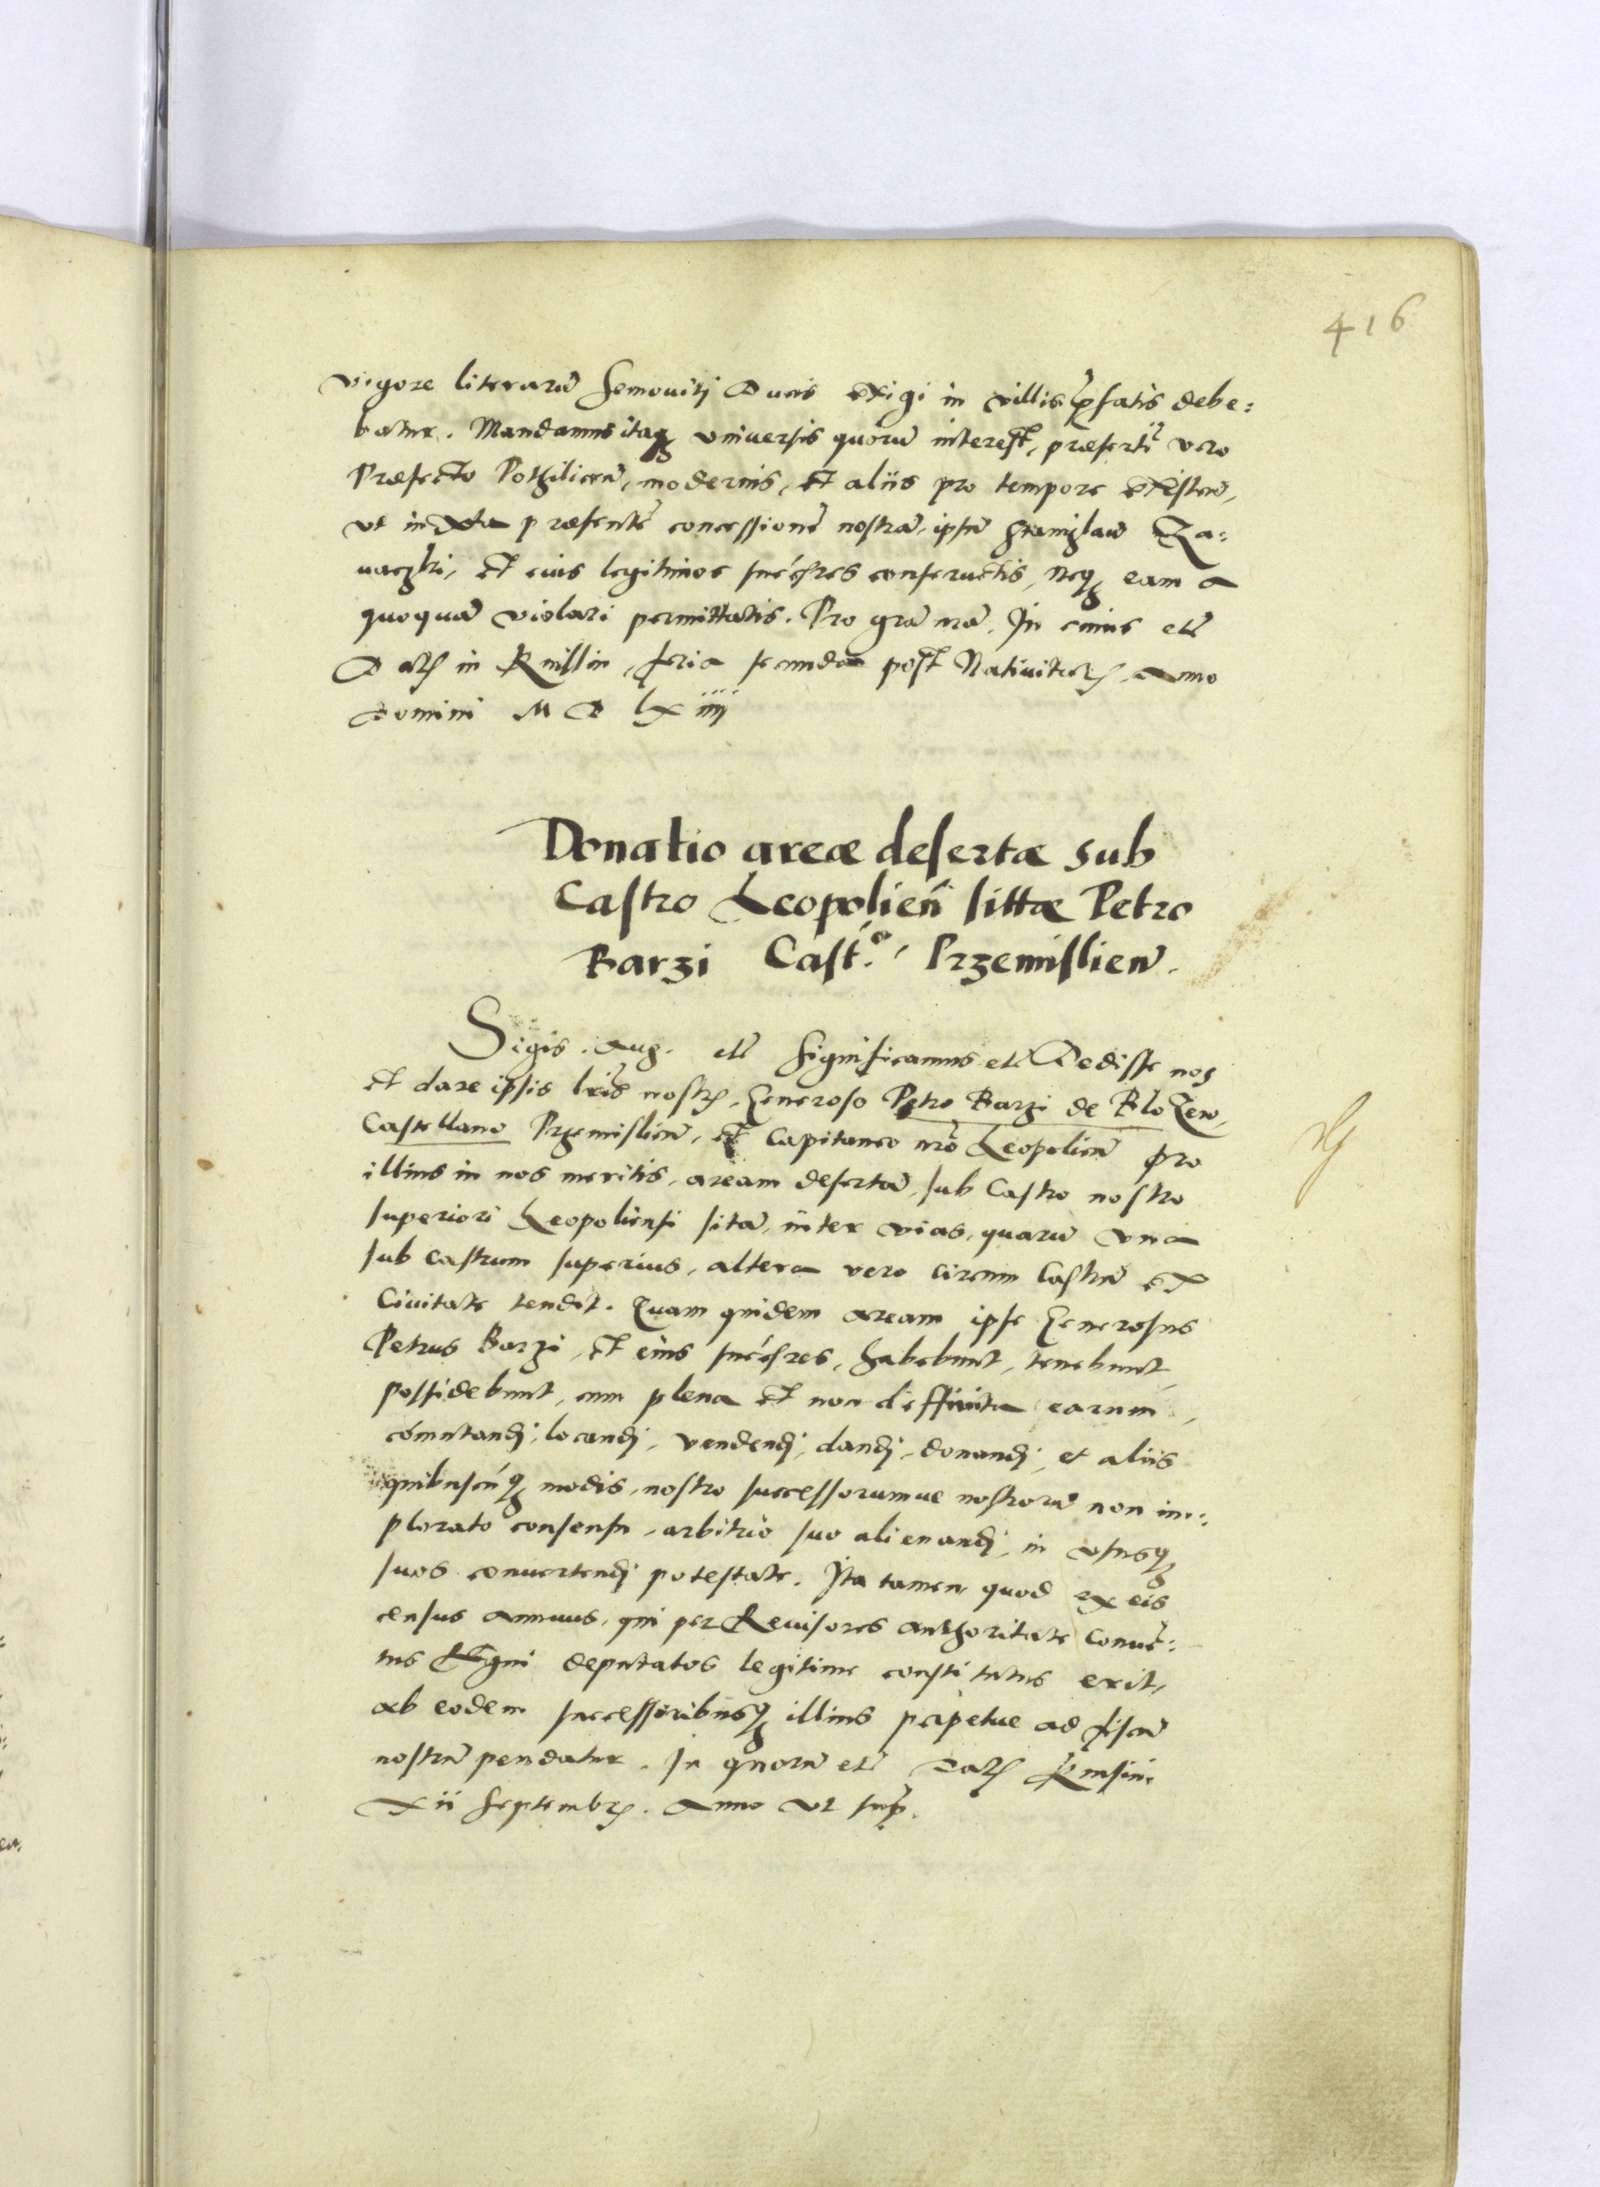 416
vigore literarū Semoviti Ducis exigi in villis p̄fatis debe:
batur. Mandamus itaq; universis quorū interest, præsertī vero
Præfecto Pothilicen̄, modernis, et aliis pro tempore existen̄,
ut iuxta præsentē concessionē nostrā, ipsū Stanislaū Za:
naczki, et eius legitimos succ̄sres conservetis, neq; eam a
quoquā violari permittatis. Pro gr̄a nr̄a. In cuius etc̄
Dat̄ in Knissin, feria secunda post Nativitat̄, Anno
Domini M D lxiiii
Donatio areæ desertæ sub
Castro Leopolien̄ sittæ Petro
Barzi Cast.º Przemislien̄.
Sigis. Aug. etc̄ Significamus etc̄ Dedisse nos
et dare ipsis lr̄is nostr̄, Generoso Petro Barzi de Blozew,
Castellano Przemislien̄, et Capitaneo nr̄o Leopolien̄ pro
illius in nos meritis, aream desertā, sub Castro nostro
superiori Leopoliensi sitā, inter vias, quarū una
sub castrum superius, altera vero circum Castrū ex
Civitate tendit. Quam quidem aream ipse Generosus
Petrus Barzi, et eius succ̄sres, habebunt, tenebunt,
possidebunt, cum plena et non diffinita earum,
com̄utandj, locandj, vendendj, dandj, donandj, et aliis
quibuscūq; modis, nostro successorumve nostrorū non im:
plorato consensu, arbitrio suo alienandj, in ususq;
suos convertendj potestate. Ita tamen quod ex eis
census annuus, qui per Revisores authoritate Conuē:
tus Regni deputatos legitime constitutus erit,
ab eodem successoribusq; illius p̱petue ad fiscū
nostrū pendatur. In quorū etc̄ Dat̄ Knisini
xii Septembr̄. Anno ut sup̄.